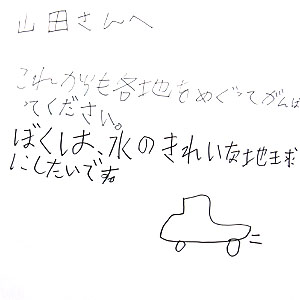 山田さんへ
これからも各地をめぐってがんば
ってください。
ぼくは、水のきれいな地球
にしたいです